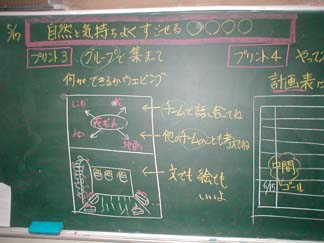 5/10
自然と気持ちよくすごせる〇〇〇〇
プリント3 グループで集まって
何ができるかウェビング
←チームで話し合ってね
←他のチームのことも考えてね
←文でも絵でも
いいよ
プリント4 やって
計画表に
中間
ゴール